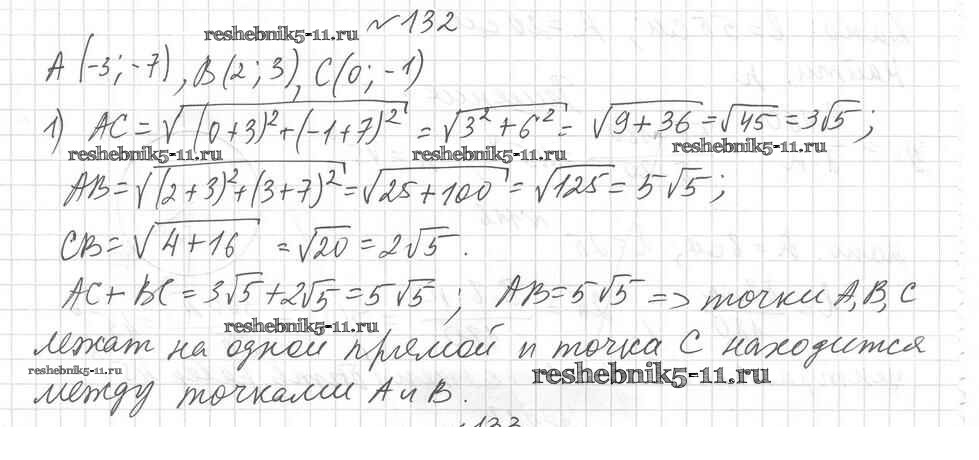 №132
reshebnik5-11.ru
A (-3; -7), B(2; 3), C(0; -1)
1) AC = √((0+3)²+(-1+7)²) = √(3²+6²) = √(9+36) = √45 = 3√5;
reshebnik5-11.ru reshebnik5-11.ru reshebnik5-11.ru
AB = √((2+3)²+(3+7)²) = √(25+100) = √125 = 5√5;
CB = √(4+16) = √20 = 2√5.
AC + BC = 3√5+2√5 = 5√5; AB = 5√5 => точки A, B, C
reshebnik5-11.ru
лежат на одной прямой и точка C находится
reshebnik5-11.ru reshebnik5-11.ru
между точками A и B.
133